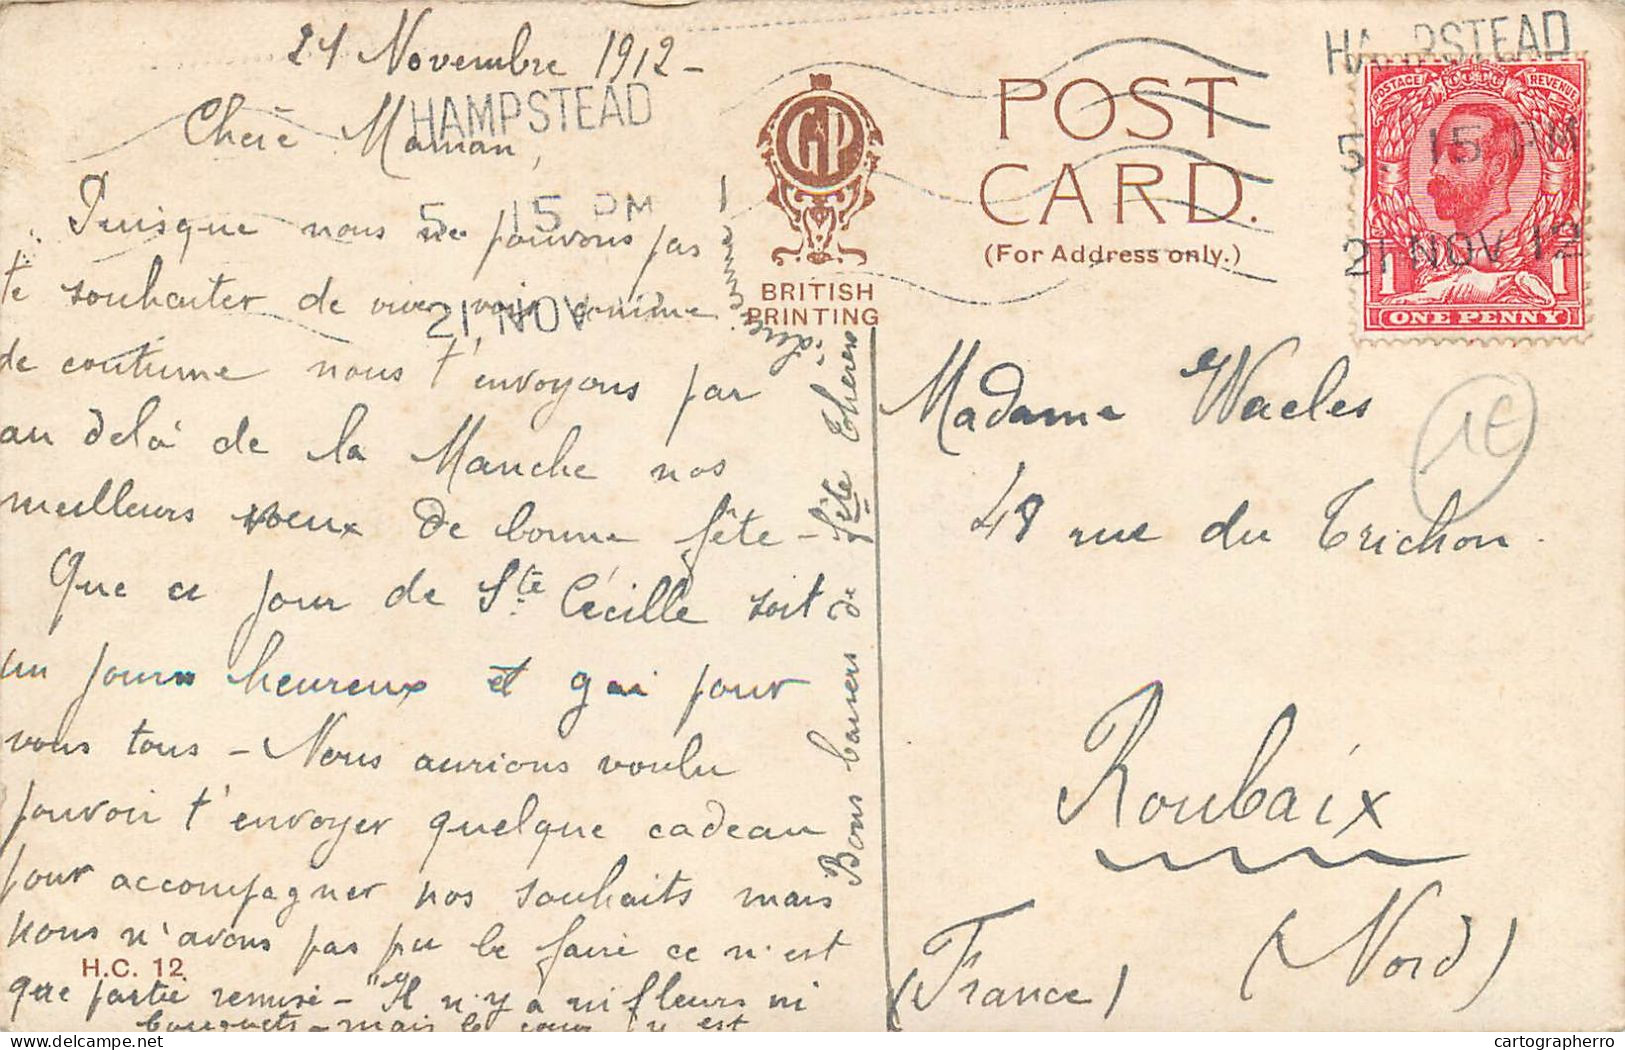 21 Novembre 1912 -
Chère Maman,
Puisque nous ne pouvons pas
te souhaiter de vive voix comme
de coutume nous t'envoyons par
au delà de la Manche nos
meilleurs voeux de bonne fête -
Que ce jour de Ste Cécille soit
un jour heureux et gai pour
vous tous - Nous aurions voulu
pouvoir t'envoyer quelque cadeau
pour accompagner nos souhaits mais
nous n'avons pas pu le faire ce n'est
que partie remise - "Il n'y a ni fleurs ni
bouquets - mais le cœur y est
Bons baisers de fête Therese
HAMPSTEAD
5 15 PM
21 NOV 12
H.C. 12
GP
BRITISH
PRINTING
POST
CARD.
(For Address only.)
HAMPSTEAD
5. 15 PM
21 NOV 12
POSTAGE
REVENUE
1 1
ONE PENNY
Madame Waeles
1€
48 rue du Trichon.
Roubaix
(Nord)
(France)
cartographerro